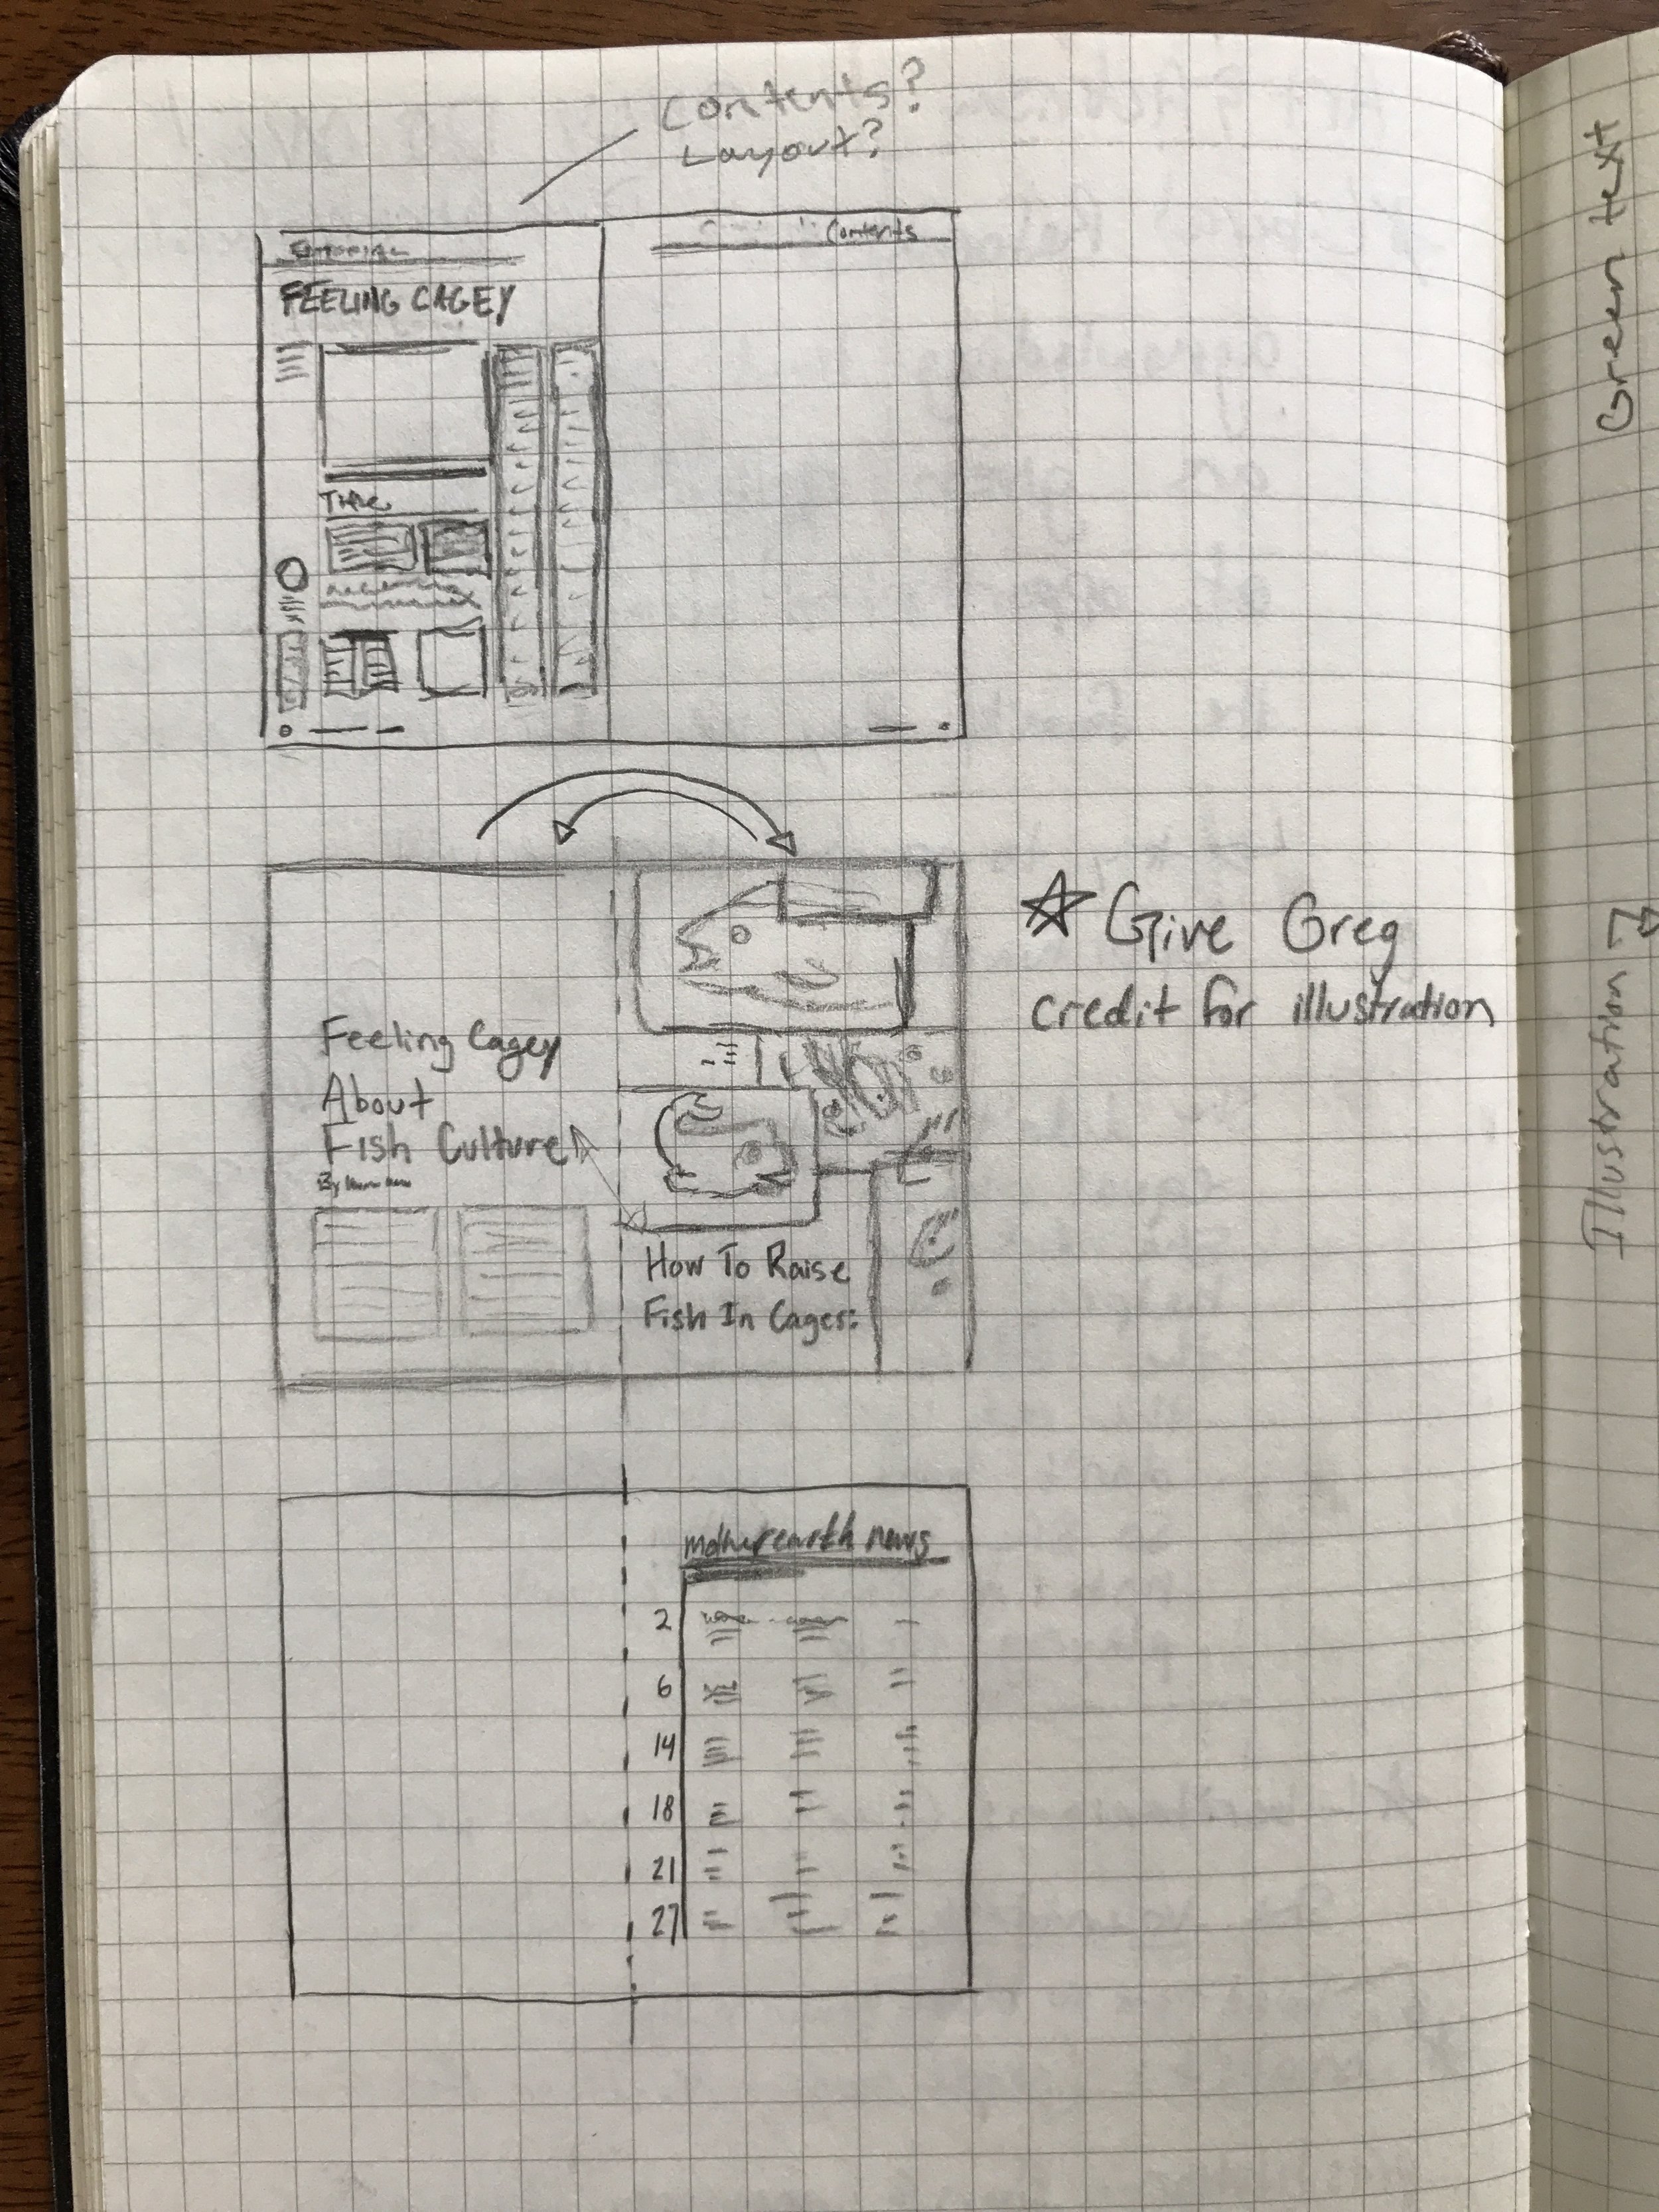 Contents?
Layout?
Contents
FEELING CAGEY
Title
Give Greg
credit for illustration
Feeling Cagey
About
Fish Culture
By
How To Raise
Fish In Cages:
mother earth news
2
6
14
18
21
27
Green text
Illustration